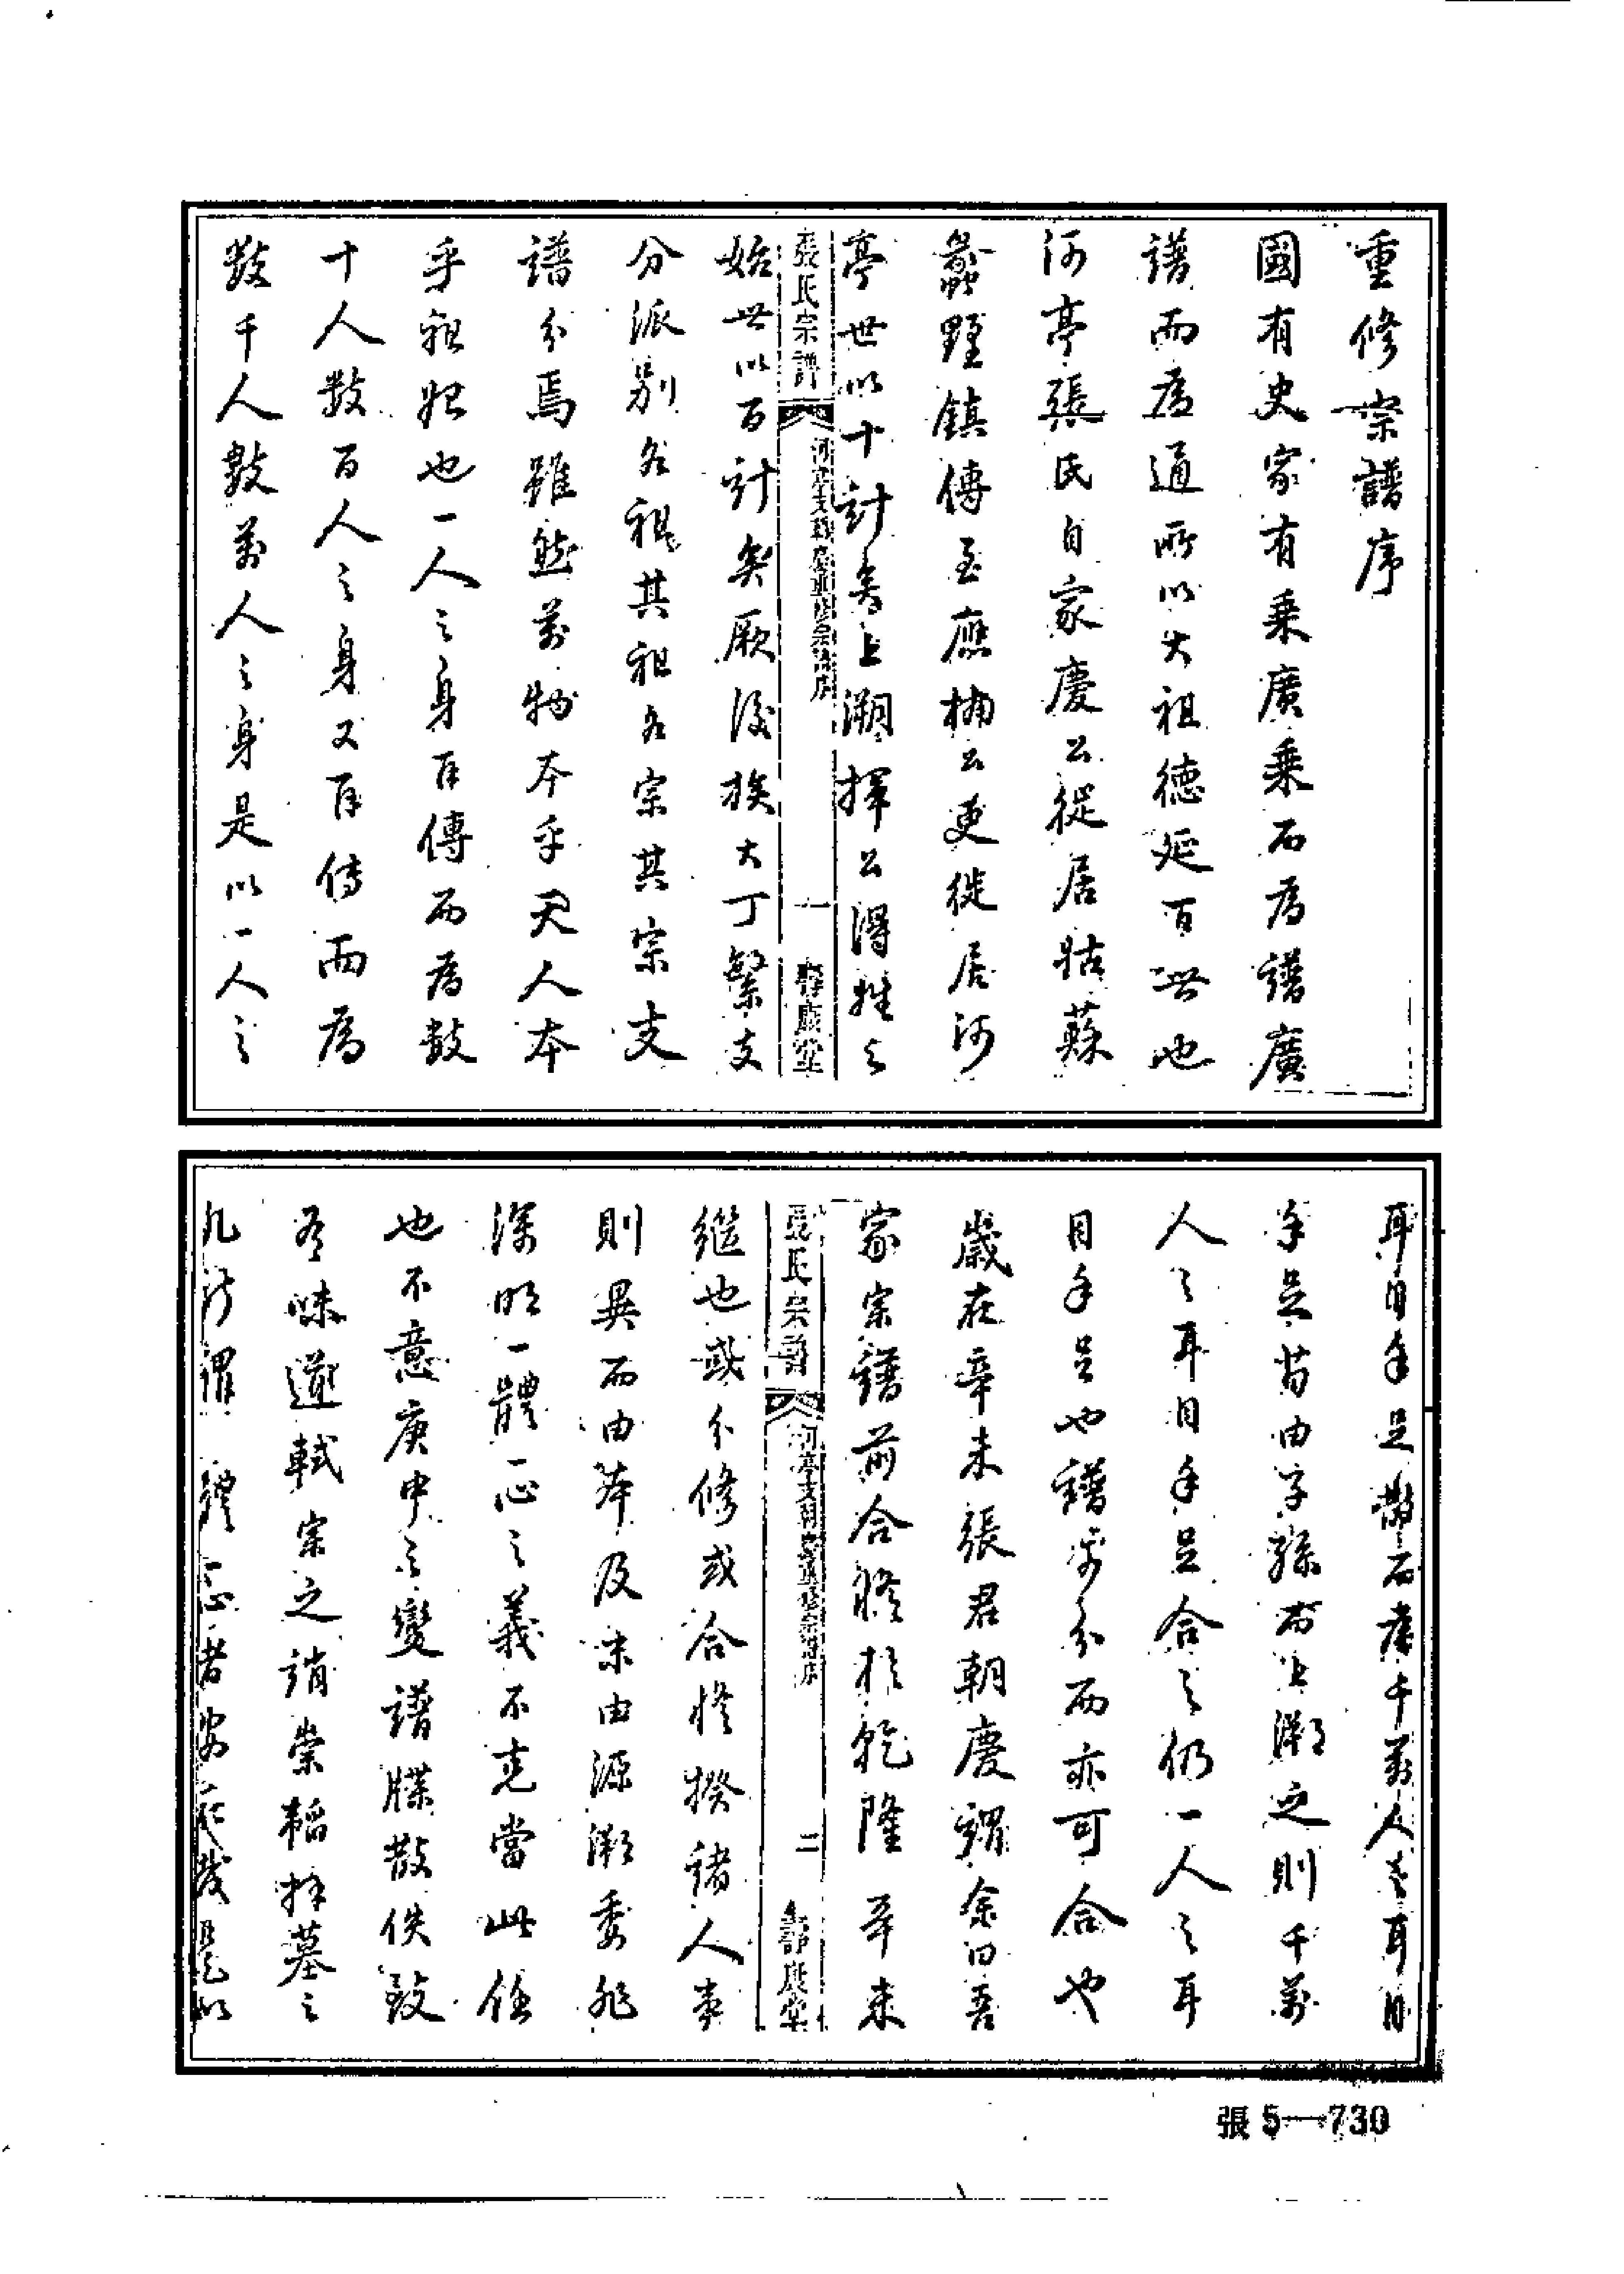 重修宗譜序
國有史家有乘廣乘而為譜廣
譜而為通所以大祖德延百世也
河亭張氏自家慶公從居姑蘇
蠡墅鎮傳至應楠公更徙居河
亭世以十計矣上溯揮公得姓之
張氏宗譜
河亭支朝慶重修宗譜序
一
孝友堂
始世以百計矣厥後族大丁繁支
分派別各祖其祖各宗其宗支
譜分焉雖然萬物本乎天人本
乎祖妣也一人之身百傳而為數
十人數百人之身又百傳而為
數千人數萬人之身是以一人之
耳目手足散而為千萬人之耳目
手足苟由子孫而上溯之則千萬
人之耳目手足合之仍一人之耳
目手足也譜步分而亦可合也
歲在辛未張君朝慶謂余曰吾
家宗譜前合修於乾隆辛未
張氏宗譜
河亭支朝慶重修宗譜序
二
繼也或分修或合修揆諸人事
則異而由本及末由源溯委非
深明一體一心之義不克當此任
也不意庚申之變譜牒散佚致
有味道軾宗之誚崇韜拜墓之
凡所謂一體一心者安在哉是以
張5—730